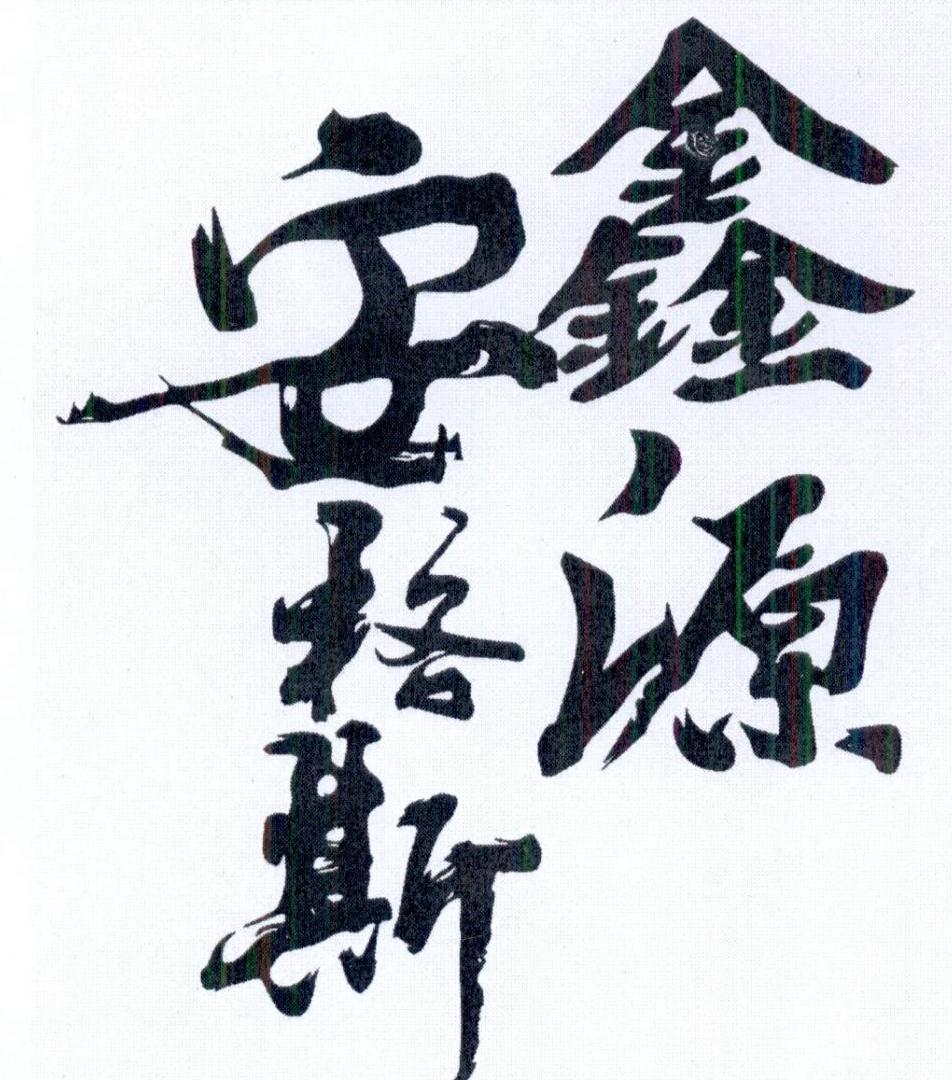 鑫源
安格斯